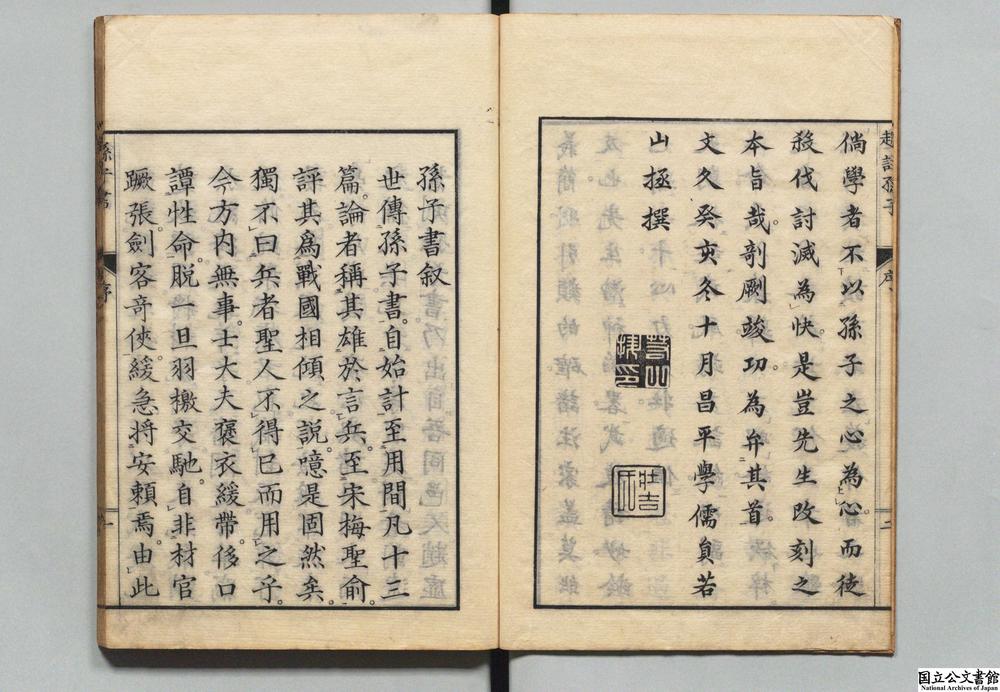 趙註孫子
序
二
倘學者不以孫子之心為心而徒
殺伐討滅為快是豈先生改刻之
本旨哉剞劂竣功為弁其首
文久癸亥冬十月昌平學儒員若
山拯撰
若山
拯印
壯吉
氏
孫子書叙
世傳孫子書自始計至用間凡十三
篇論者稱其雄於言兵至宋梅聖俞
評其爲戰國相傾之說噫是固然矣
獨不曰兵者聖人不得已而用之乎
今方內無事士大夫褒衣緩帶侈口
譚性命脫一旦羽檄交馳自非材官
蹶張劍客奇俠緩急將安賴焉由此
孫子書
序
一
国立公文書館
National Archives of Japan